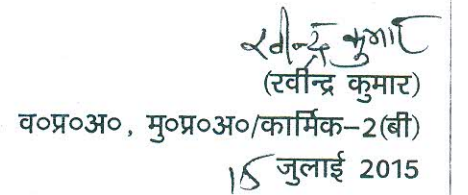 रवीन्द्र कुमार
(रवीन्द्र कुमार)
व०प्र०अ०, मु०प्र०अ०/कार्मिक–2(बी)
15 जुलाई 2015